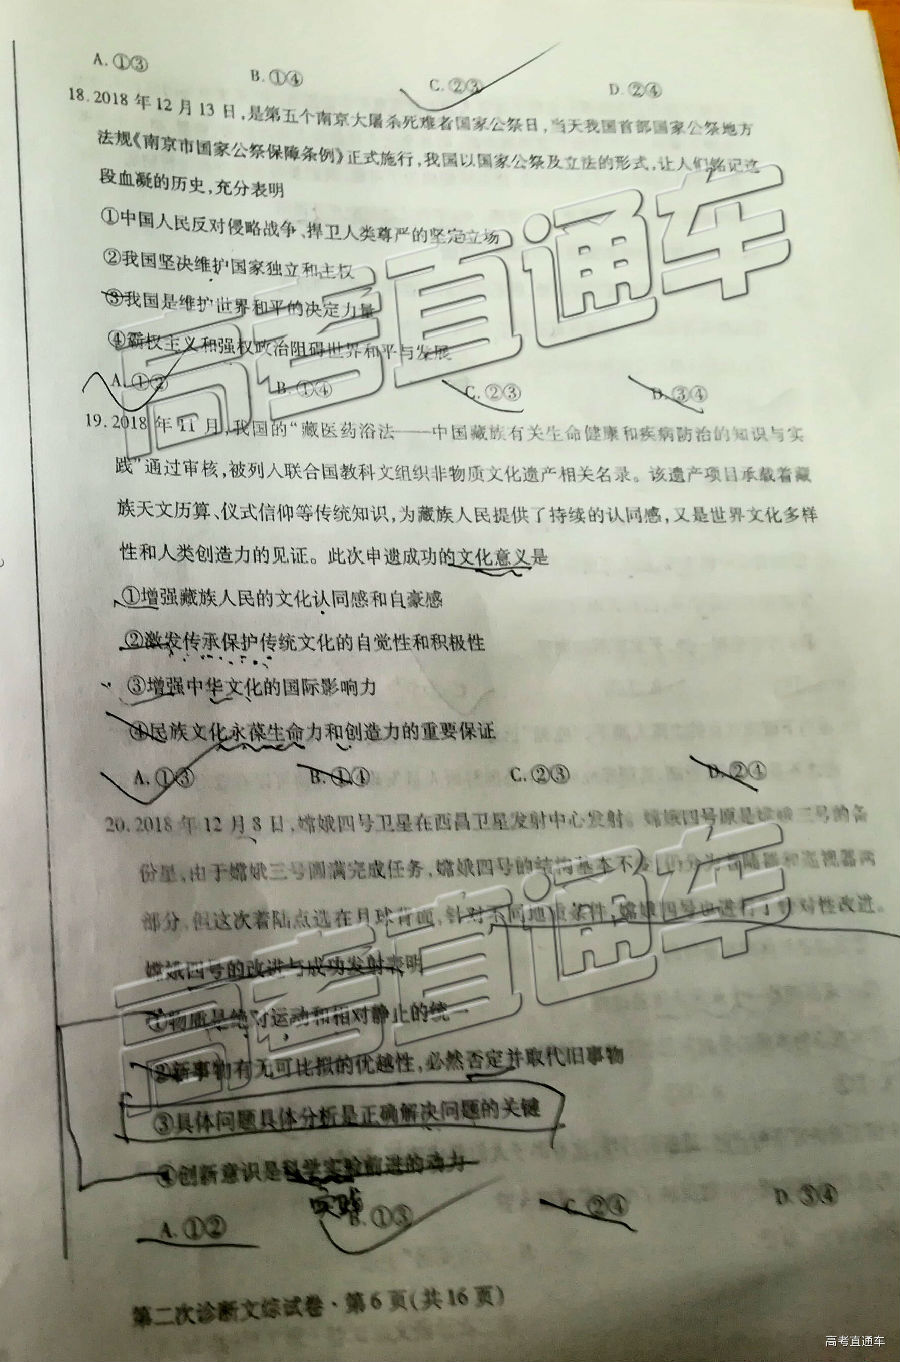 A.①③ B.①④ C.②③ D.②④
18.2018年12月13日,是第五个南京大屠杀死难者国家公祭日,当天我国首部国家公祭地方
法规《南京市国家公祭保障条例》正式施行,我国以国家公祭及立法的形式,让人们铭记这
段血凝的历史,充分表明
①中国人民反对侵略战争、捍卫人类尊严的坚定立场
②我国坚决维护国家独立和主权
③我国是维护世界和平的决定力量
④霸权主义和强权政治阻碍世界和平与发展
A.①② B.①④ C.②③ D.③④
19.2018年11月,我国的“藏医药浴法——中国藏族有关生命健康和疾病防治的知识与实
践”通过审核,被列入联合国教科文组织非物质文化遗产相关名录。该遗产项目承载着藏
族天文历算、仪式信仰等传统知识,为藏族人民提供了持续的认同感,又是世界文化多样
性和人类创造力的见证。此次申遗成功的文化意义是
①增强藏族人民的文化认同感和自豪感
②激发传承保护传统文化的自觉性和积极性
③增强中华文化的国际影响力
④民族文化永葆生命力和创造力的重要保证
A.①③ B.①④ C.②③ D.②④
20.2018年12月8日,嫦娥四号卫星在西昌卫星发射中心发射。嫦娥四号原是嫦娥三号的备
份星,由于嫦娥三号圆满完成任务,嫦娥四号的结构基本不变(仍分为着陆器和巡视器两
部分,但这次着陆点选在月球背面,针对不同地质条件,嫦娥四号也进行了针对性改进。
嫦娥四号的改进与成功发射表明
①物质是绝对运动和相对静止的统一
②新事物有无可比拟的优越性,必然否定并取代旧事物
③具体问题具体分析是正确解决问题的关键
④创新意识是科学实验前进的动力
实践
A.①② B.①③ C.②④ D.③④
第二次诊断文综试卷·第6页(共16页)
高考直通车
高考直通车
高考直通车